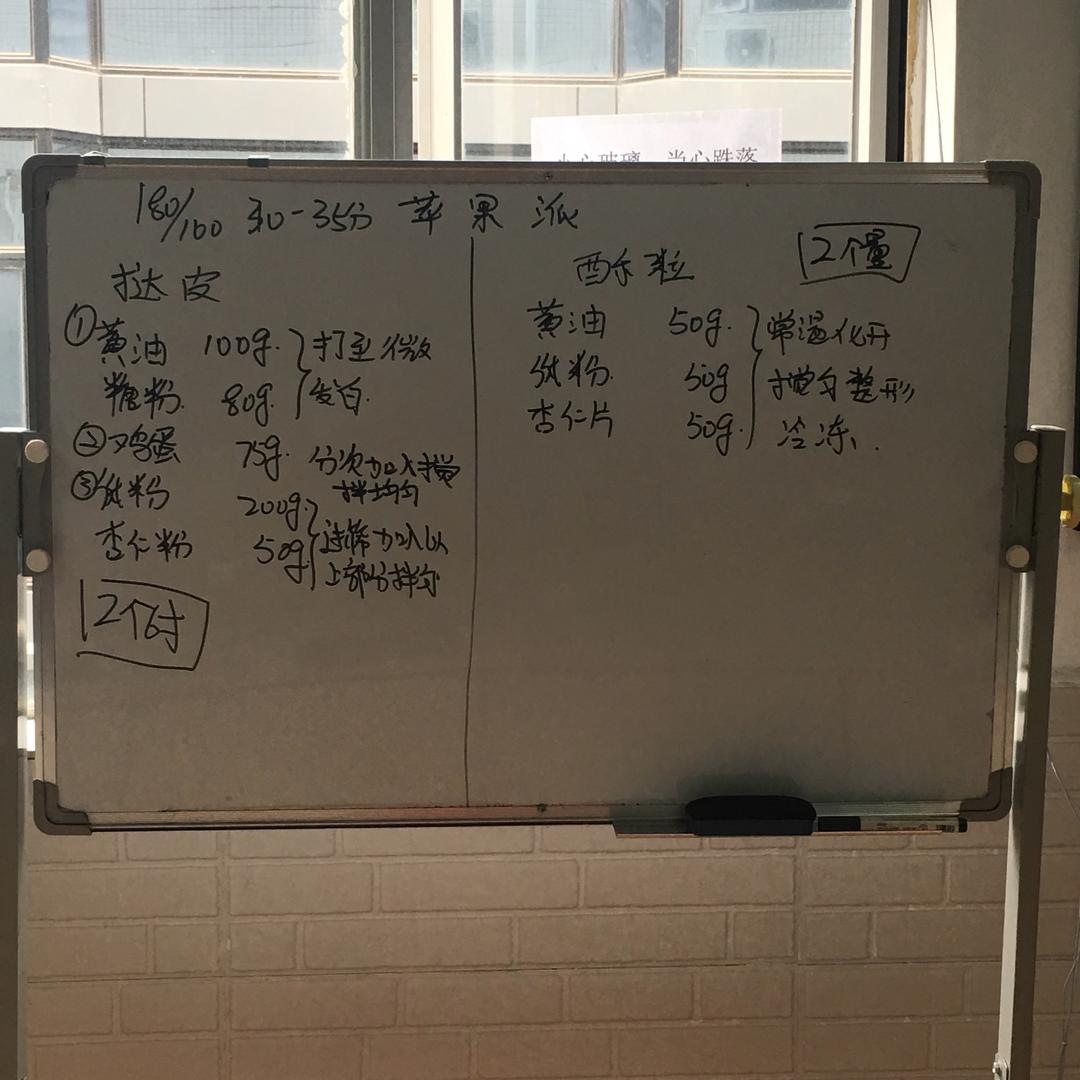 小心玻璃 当心跌落
180/160 30-35分 苹果派
挞皮
①黄油 100g.
糖粉. 80g.
打至微
发白.
②鸡蛋 75g. 分次加入搅
拌均匀
③低粉 200g.
杏仁粉 50g
过筛加入以
上部分拌匀
12个6寸
酥粒
2个量
黄油 50g.
低粉. 50g
杏仁片 50g.
常温化开
搅匀整形
冷冻.